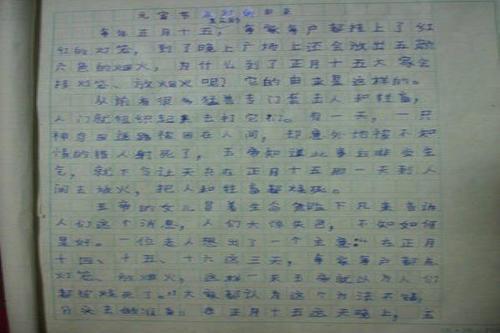 元宵节的由来
每年正月十五，每家每户都挂上了红
红的灯笼，到了晚上广场上还会放出五颜
六色的烟火，为什么到了正月十五大家会
挂灯笼、放烟火呢？它的由来是这样的。
从前有很多猛兽专门害主人和牲畜，
人门就组织起来去打它们。有一天，一只
神鸟因迷路被困在人间，却意外地被不知
情的猎人射死了，玉帝知道此事后非常生
气，就下令让天兵在正月十五那一天到人
间去放火，把人和牲畜都烧死。
玉帝的女儿冒着生命危险下凡来告诉
人们这个消息，人们大惊失色，不知如何
是好。一位老人想出了一个主意：“在正月
十四、十五、十六这三天，每家每户都点
灯笼、放烟火，这样一来玉帝就以为人们
都给烧死了。”大家都认为这个办法不错，
分头去做准备。在正月十五这天晚上，玉